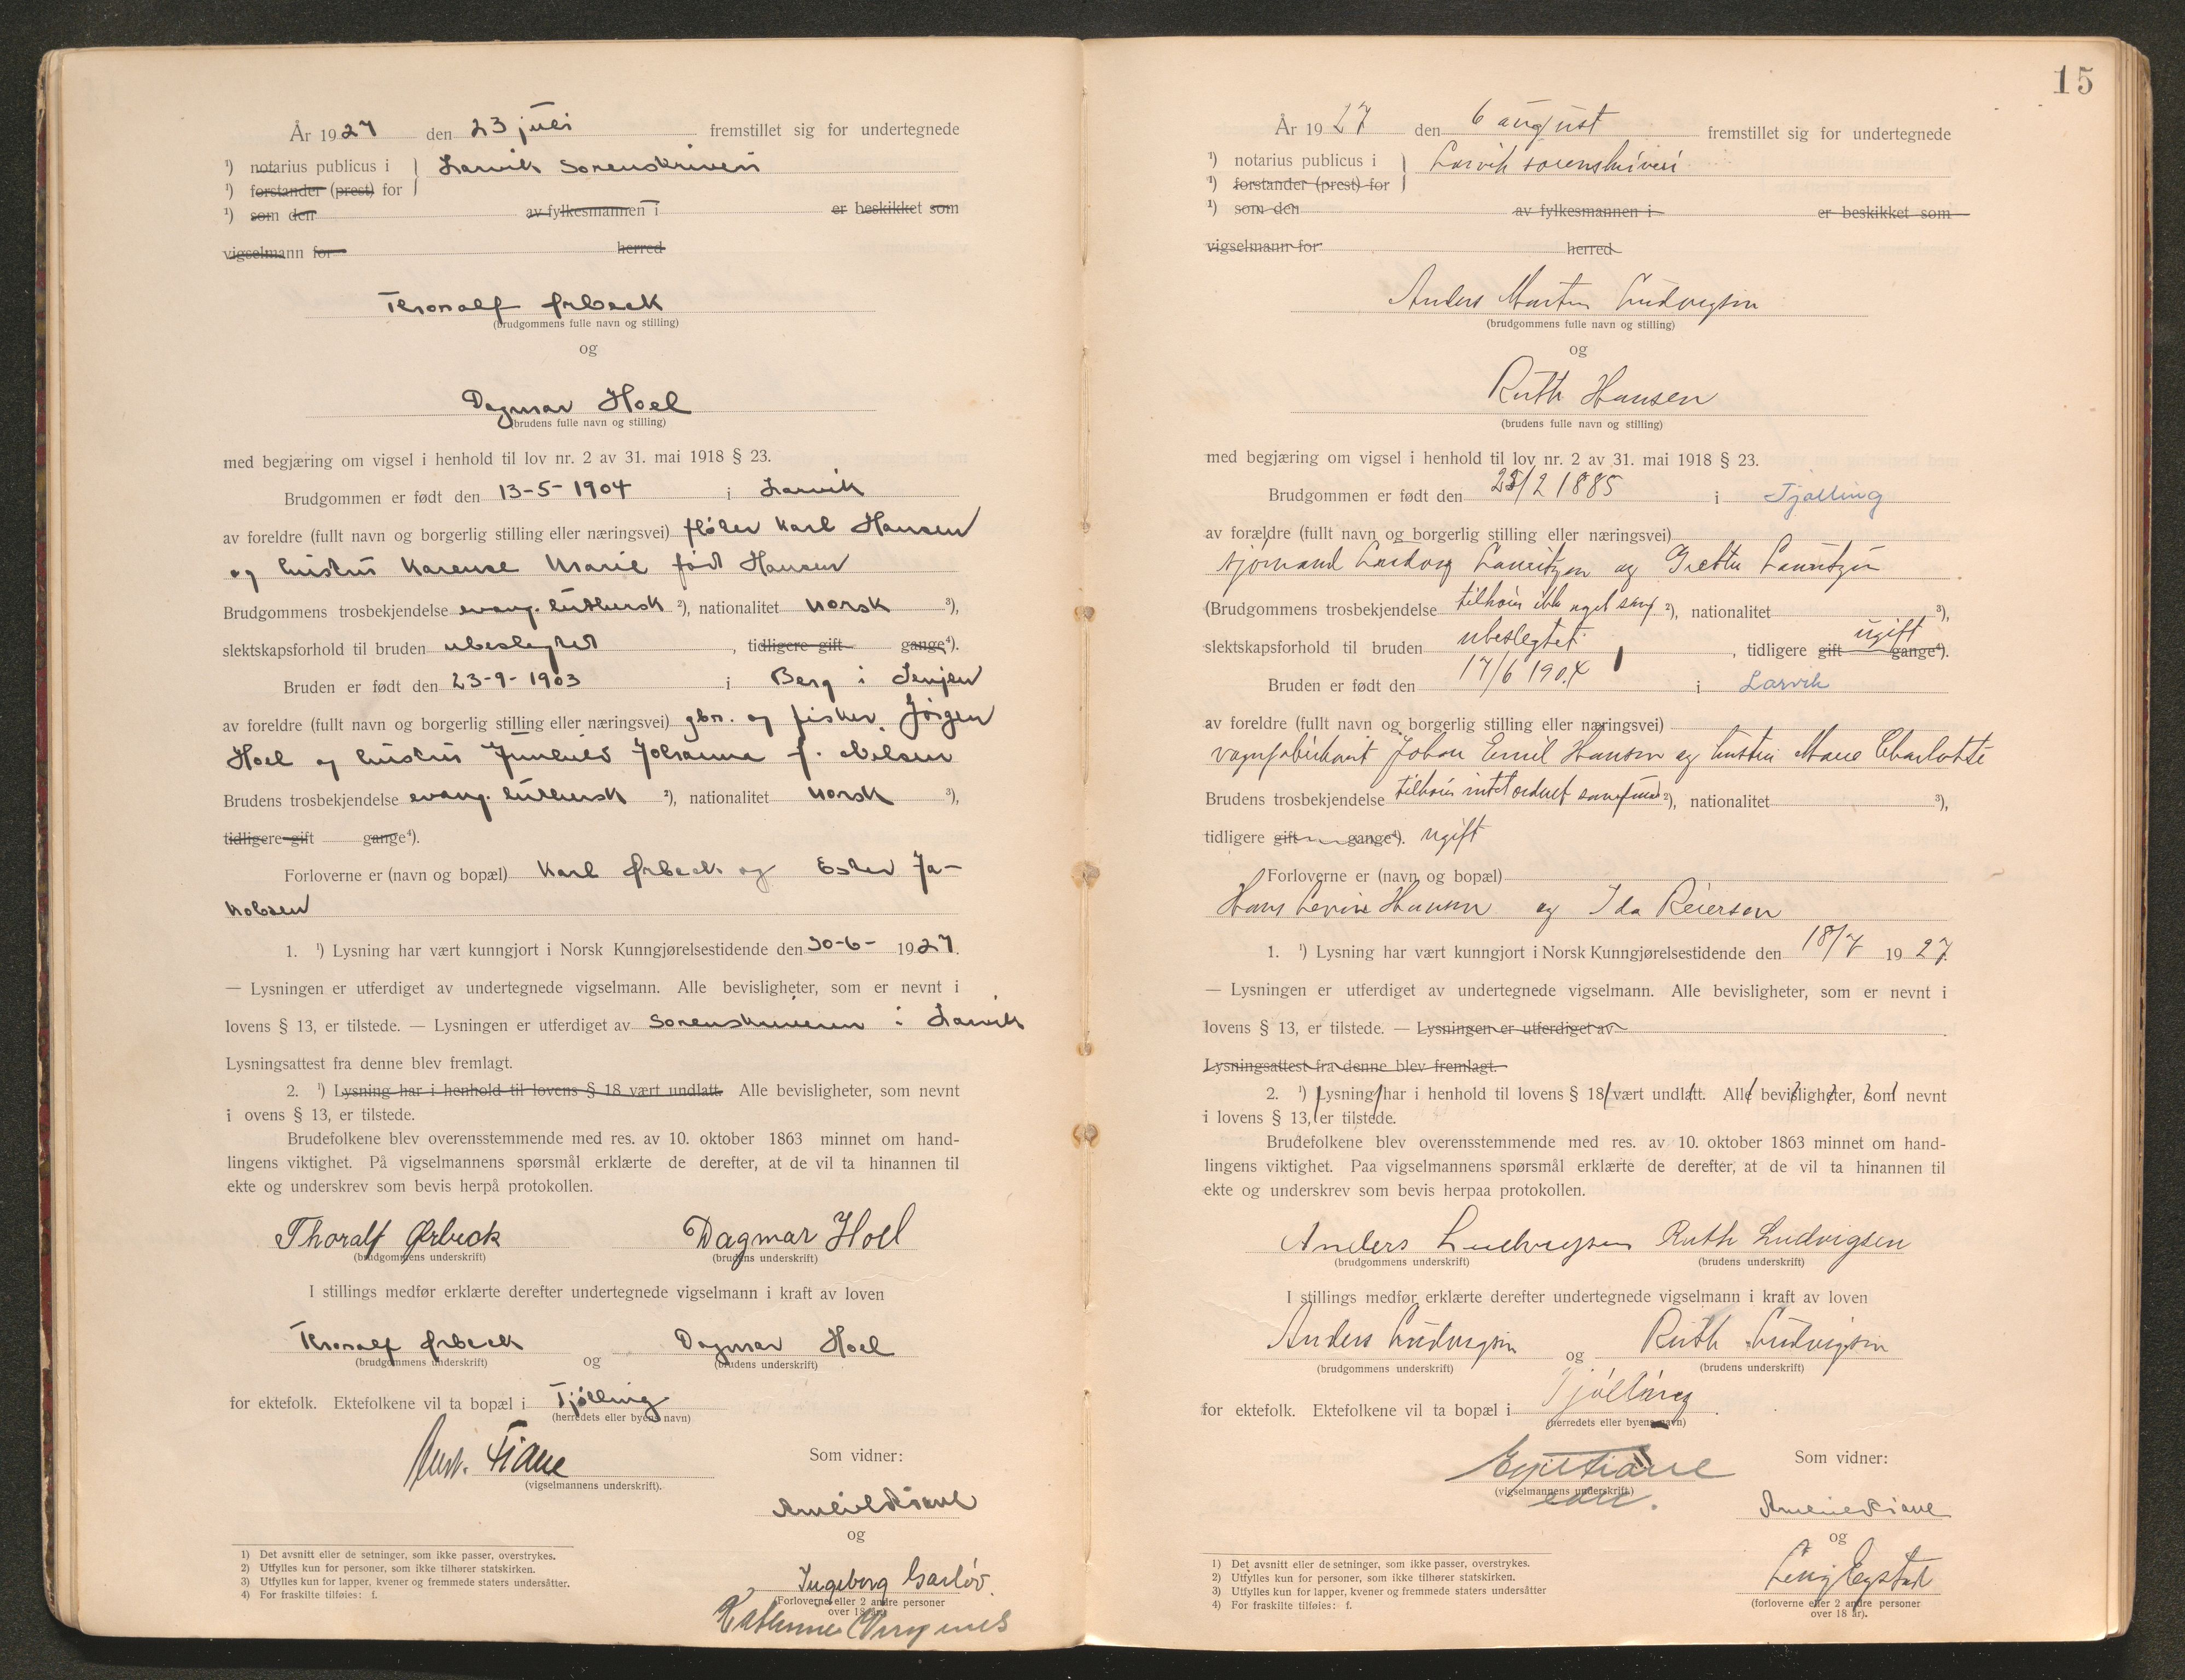 År 1927 den 23 juli fremstillet sig for undertegnede
¹) notarius publicus i } Larvik Sorenskriveri
¹) forstander (prest) for
¹) som den av fylkesmannen i er beskikket som
vigselmann for herred
Thoralf Ørbeck
(brudgommens fulle navn og stilling)
og
Dagmar Hoel
(brudens fulle navn og stilling)
med begjæring om vigsel i henhold til lov nr. 2 av 31. mai 1918 § 23.
Brudgommen er født den 13-5-1904 i Larvik
av foreldre (fullt navn og borgerlig stilling eller næringsvei) fløter Karl Hansen
og hustru Karense Marie født Hansen
Brudgommens trosbekjendelse evang. luthersk ²), nationalitet norsk ³),
slektskapsforhold til bruden ubeslegtet, tidligere gift gange⁴).
Bruden er født den 23-9-1903 i Berg i Senjen
av foreldre (fullt navn og borgerlig stilling eller næringsvei) gbr. og fisker Jörgen
Hoel og hustru Johanna f. Nilsen
Brudens trosbekjendelse evang. luthersk ²), nationalitet norsk ³),
tidligere gift gange⁴).
Forloverne er (navn og bopæl) Karl Ørbeck og Ester Ja-
kobsen
1. ¹) Lysning har vært kunngjort i Norsk Kunngjørelsestidende den 30-6- 1927.
— Lysningen er utferdiget av undertegnede vigselmann. Alle bevisligheter, som er nevnt i
lovens § 13, er tilstede. — Lysningen er utferdiget av Sorenskriveren i Larvik
Lysningsattest fra denne blev fremlagt.
2. ¹) Lysning har i henhold til lovens § 18 vært undlatt. Alle bevisligheter, som nevnt
i ovens § 13, er tilstede.
Brudefolkene blev overensstemmende med res. av 10. oktober 1863 minnet om hand-
lingens viktighet. På vigselmannens spørsmål erklærte de derefter, at de vil ta hinannen til
ekte og underskrev som bevis herpå protokollen.
Thoralf Ørbeck Dagmar Hoel
(brudgommens underskrift) (brudens underskrift)
I stillings medfør erklærte derefter undertegnede vigselmann i kraft av loven
Thoralf Ørbeck og Dagmar Hoel
(brudgommens underskrift) (brudens underskrift)
for ektefolk. Ektefolkene vil ta bopæl i Tjölling
(herredets eller byens navn)
Tiane
(vigselmannens underskrift).
Som vidner:
og
Ingeborg
(Forloverne eller 2 andre personer
over 18 år).
1) Det avsnitt eller de setninger, som ikke passer, overstrykes.
2) Utfylles kun for personer, som ikke tilhører statskirken.
3) Utfylles kun for lapper, kvener og fremmede staters undersåtter.
4) For fraskilte tilføies: f.
15
År 1927 den 6 august fremstillet sig for undertegnede
¹) notarius publicus i } Larvik sorenskriveri
¹) forstander (prest) for
¹) som den av fylkesmannen i er beskikket som
vigselmann for herred
Anders Martin Ludvigsen
(brudgommens fulle navn og stilling)
og
Ruth Hansen
(brudens fulle navn og stilling)
med begjæring om vigsel i henhold til lov nr. 2 av 31. mai 1918 § 23.
Brudgommen er født den /2 1885 i Tjølling
av forældre (fullt navn og borgerlig stilling eller næringsvei)
sjömand Ludvig Lauritzen og Grethe Lauritzen
(Brudgommens trosbekjendelse tilhörer ikke noget samf ²), nationalitet ³),
slektskapsforhold til bruden ubeslegtet, tidligere gift gange⁴). ugift
Bruden er født den 17/6 1904 i Larvik
av foreldre (fullt navn og borgerlig stilling eller næringsvei)
vognfabrikant Johan Emil Hansen og hustru Marie Charlotte
Brudens trosbekjendelse tilhörer intet ordnet samfund ²), nationalitet ³),
tidligere gift gange⁴). ugift
Forloverne er (navn og bopæl)
Hans Hansen og Ida Reiersen
1. ¹) Lysning har vært kunngjort i Norsk Kunngjørelsestidende den 18/7 1927.
— Lysningen er utferdiget av undertegnede vigselmann. Alle bevisligheter, som er nevnt i
lovens § 13, er tilstede. — Lysningen er utferdiget av
Lysningsattest fra denne blev fremlagt.
2. ¹) Lysning har i henhold til lovens § 18 vært undlatt. Alle bevisligheter, som nevnt
i lovens § 13, er tilstede.
Brudefolkene blev overensstemmende med res. av 10. oktober 1863 minnet om hand-
lingens viktighet. Paa vigselmannens spørsmål erklærte de derefter, at de vil ta hinannen til
ekte og underskrev som bevis herpaa protokollen.
Anders Ludvigsen Ruth Ludvigsen
(brudgommens underskrift) (brudens underskrift)
I stillings medfør erklærte derefter undertegnede vigselmann i kraft av loven
Anders Ludvigsen og Ruth Ludvigsen
(brudgommens underskrift) (brudens underskrift)
for ektefolk. Ektefolkene vil ta bopæl i Tjölling
(herredets eller byens navn)
(vigselmannens underskrift.)
Som vidner:
og
(forloverne eller 2 andre personer
over 18 år).
1) Det avsnitt eller de setninger, som ikke passer, overstrykes.
2) Utfylles kun for personer, som ikke tilhører statskirken.
3) Utfylles kun for lapper, kvener og fremmede staters undersåtter
4) For fraskilte tilføies: f.